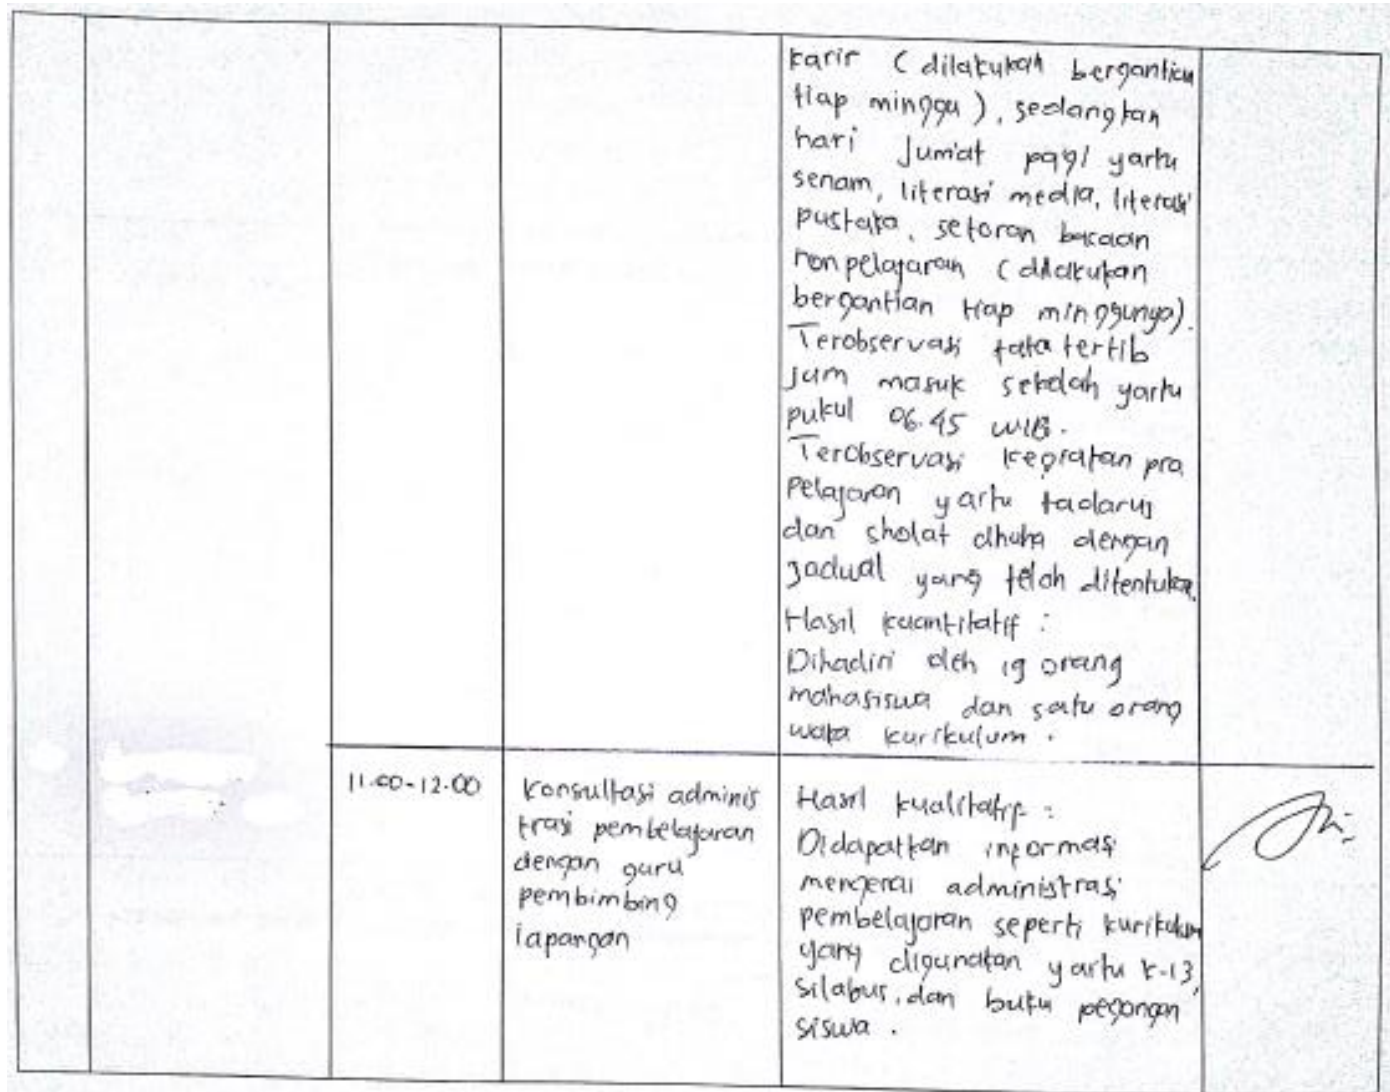 karir (dilakukan bergantian
tiap minggu), sedangkan
hari Jum'at pagi yaitu
senam, literasi media, literasi
pustaka, setoran bacaan
non pelajaran (dilakukan
bergantian tiap minggunya).
Terobservasi tata tertib
jam masuk sekolah yaitu
pukul 06.45 WIB.
Terobservasi kegiatan pra
pelajaran yaitu tadarus
dan sholat dhuha dengan
jadual yang telah ditentukan.
Hasil kuantitatif :
Dihadiri oleh 19 orang
mahasiswa dan satu orang
waka kurikulum.
11.00-12.00
Konsultasi adminis
trasi pembelajaran
dengan guru
pembimbing
lapangan
Hasil kualitatif :
Didapatkan informasi
mengenai administrasi
pembelajaran seperti kurikulum
yang digunakan yaitu K-13,
silabus, dan buku pegangan
siswa.